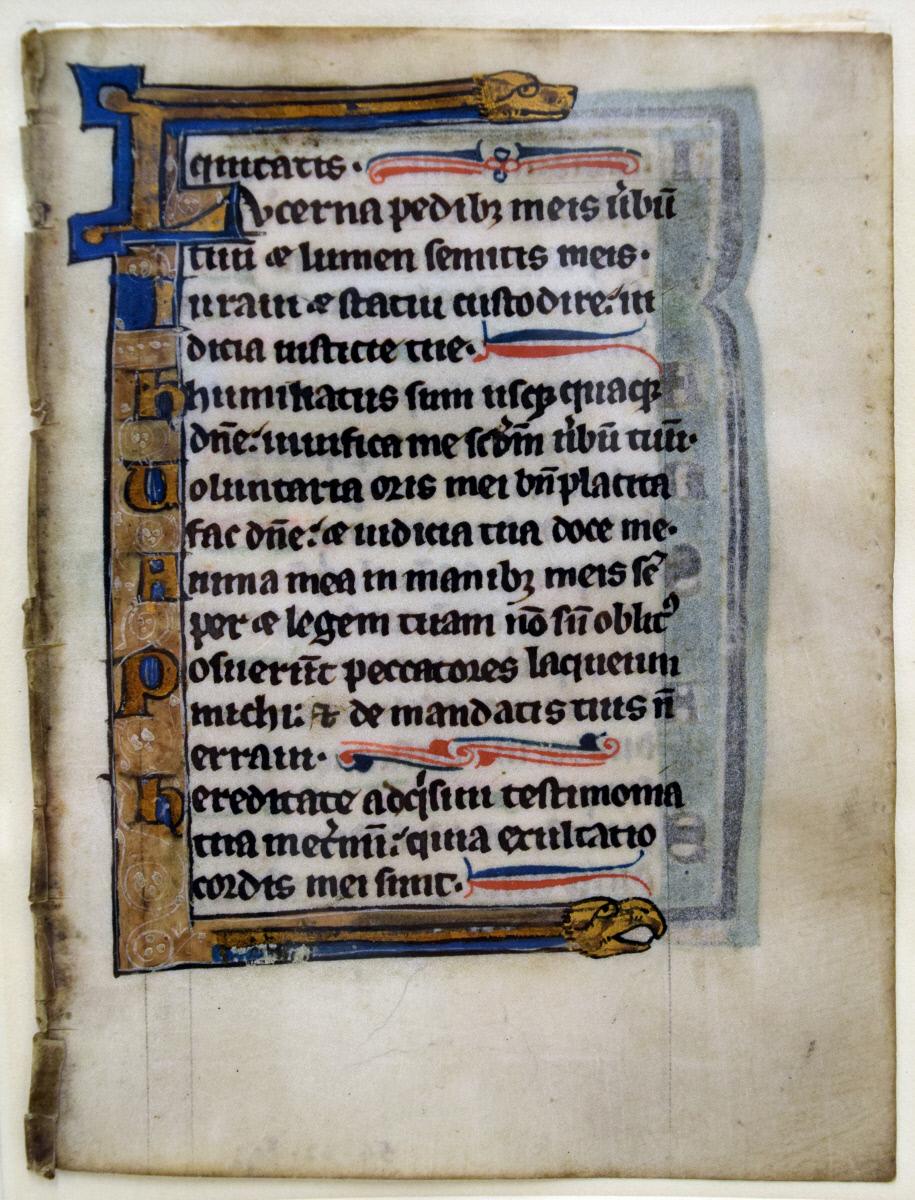 quitatis.
Lucerna pedibꝫ meis ũbũ
tuũ ⁊ lumen semitis meis.
Iuraui ⁊ statui custodire: iu
dicia iusticie tue.
Hhumiliatus sum usqꝫ quaqꝫ
dñe: uiuifica me scd̃m ũbũ tuũ.
Uoluntaria oris mei bñplacita
fac dñe: ⁊ iudicia tua doce me.
Anima mea in manibꝫ meis sẽ
per ⁊ legem tuam nõ sũ oblitꝰ
Posuerũt peccatores laqueum
michi: ⁊ de mandatis tuis ñ
erraui.
Hereditate adqͥsiui testimonia
tua ĩet̃nũ: quia exultatio
cordis mei sunt.